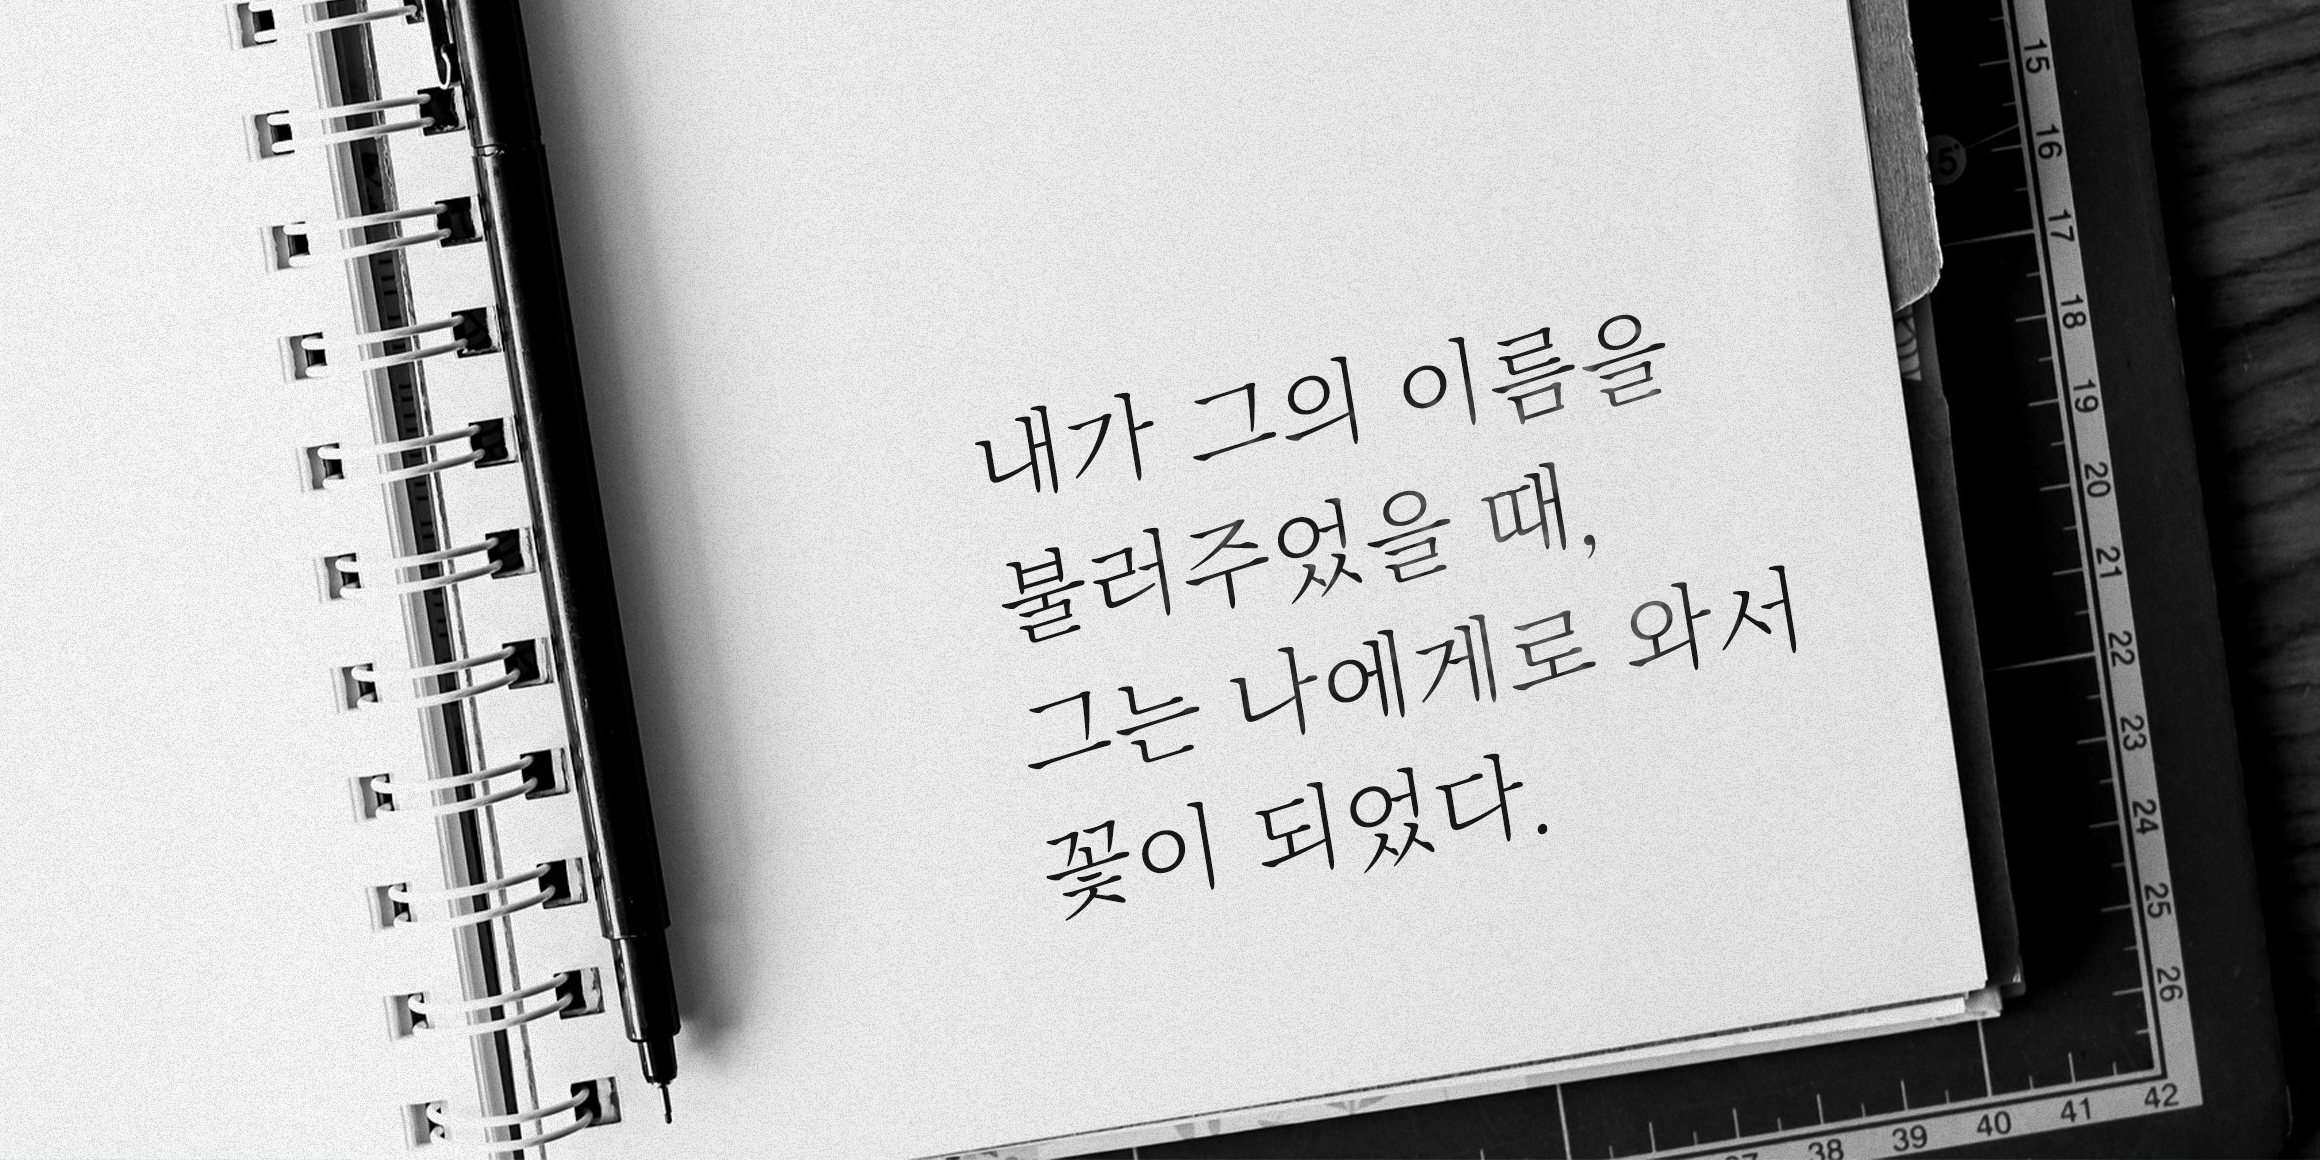 내가 그의 이름을
불러주었을 때,
그는 나에게로 와서
꽃이 되었다.
15
16
5
17
18
19
20
21
22
23
24
25
26
38
39
40
41
42